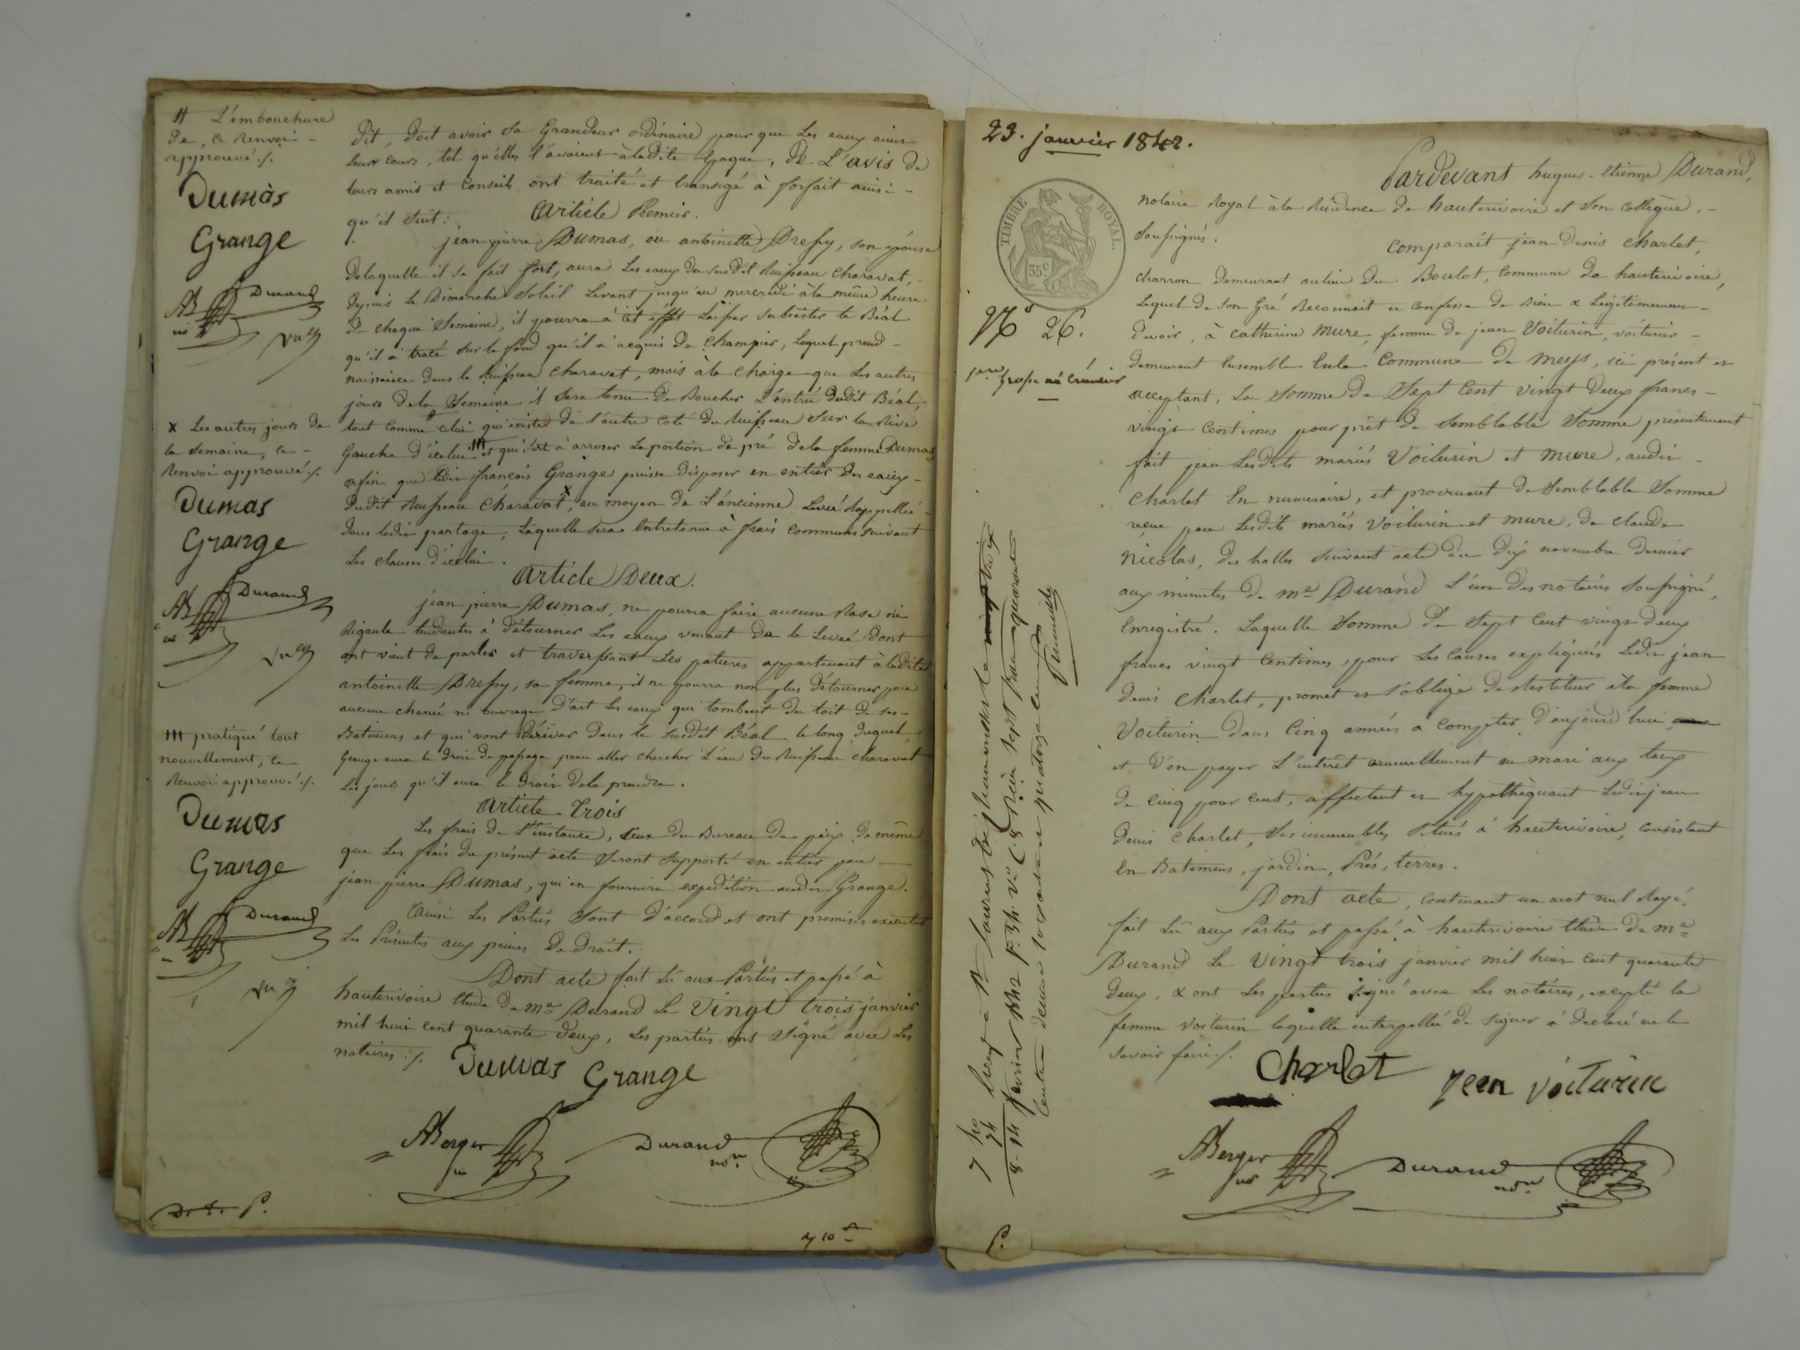 # L'embouchure
de, ce Renvoi -
approuvé ./.
Dumas
Grange
AB Durand
x Les autres jours de
la Semaine, ce -
Renvoi approuvé ./.
Dumas
Grange
AB Durand
### pratiqué tout
nouvellement, ce
Renvoi approuvé ./.
Dumas
Grange
AB Durand
dit, doit avoir sa Grandeur ordinaire pour que Les eaux aient
leur cours, tel qu'elles l'avaient à ladite Epoque, De L'avis de
leurs amis et Conseils ont traité et transigé à forfait ainsi -
qu'il suit :
Article Premier.
jean pierre Dumas, ou antoinette Drefsy, son épouse
delaquelle il se fait fort, aura Les eaux du susdit Ruisseau Charavat,
depuis Le Dimanche Soleil Levant jusqu'au mercredi à la même heure
de chaque Semaine, il pourra à cet effet Laisser subsister le Béal
qu'il a tracé sur le fond qu'il a acquis de Champier, Lequel prend -
naissance dans le Ruisseau Charavat, mais à la Charge que Les autres
jours de la Semaine il sera tenu de Boucher L'entrée dudit Béal,
tout comme # celui qui existe de l'autre coté du Ruisseau sur la Rive
Gauche d'icelui ### et qui sert à arroser La portion de pré de la femme Dumas
afin que ledit françois Grange puisse disposer en entier des eaux -
dudit Ruisseau Charavat, x au moyen de L'ancienne Levée Rappellée -
dans ledit partage, Laquelle sera Entretenue à frais Communs suivant
Les clauses d'icelui.
Article Deux.
jean pierre Dumas, ne pourra faire aucune Rase ni
Rigaule tendantes à détourner Les eaux venant de la Levée dont
ont vient de parler et traversant Les patures appartenant à ladite
antoinette Drefsy, sa femme, il ne pourra non plus détourner par
aucune chanée ni ouvrage d'art Les eaux qui tombent du toit de ses -
Batimens et qui vont dériver dans le susdit Béal le long duquel,
Grange aura le droit de passage pour aller chercher L'eau du Ruisseau Charavat
Les jours qu'il aura le droit de la prendre.
Article Trois
Les frais de L'instance, Ceux du Bureau de paix, de même
que Les frais du présent acte Seront Supporté en entier par -
jean pierre Dumas, qui en fournira expédition audit Grange.
Ainsi Les Parties sont d'accord et ont promis exécuter
Les Présentes aux peines de droit.
Dont acte fait Lu aux Parties et passé à
hauterivoire Etude de me Durand Le Vingt trois janvier
mil huit cent quarante deux, Les parties ont Signé avec Les
notaires ./.
Dumas Grange
ABerger Durand
nore
23. janvier 1842.
TIMBRE ROYAL.
35c
No 26.
Grosse au Créancier
Pardevant hugues-Etienne Durand,
notaire Royal à la Résidence de hauterivoire et son Collègue, -
Soussignés.
Comparait jean Denis Charlet,
charron demeurant au lieu du Boulot, Commune de hauterivoire,
Lequel de son Gré Reconnait et confesse de Bien & Légitimement -
devoir, à Catherine Mure, femme de jean Voiturin, voiturier -
demeurant Ensemble en la Commune de Meys, ici présent et
acceptant, La Somme de Sept Cent Vingt Deux francs -
vingt Centimes pour prêt de Semblable Somme présentement
fait par Lesdits mariés Voiturin et Mure, audit -
Charlet En numéraire, et provenant de Semblable Somme
reçue par Lesdits mariés Voiturin et Mure, de Claude
Nicolas, des halles suivant acte du dix novembre dernier
aux minutes de me Durand L'un des notaires Soussigné,
Enregistré. Laquelle Somme de Sept Cent vingt deux
francs vingt Centimes, pour Les Causes expliquées Ledit jean
denis Charlet, promet et s'oblige de Restituer à la femme
Voiturin dans Cinq années à Compter d'aujourd'hui,
et d'en payer L'intérêt annuellement au mari aux taux
de Cinq pour Cent, affectant et hypothèquant Ledit jean
denis Charlet, ses immeubles situés à hauterivoire, Consistant
En Batimens, jardin, Prés, terres.
Dont acte, contenant un mot nul Rayé,
fait Lu aux Parties et passé à hauterivoire Etude de me
Durand Le Vingt trois janvier mil huit Cent quarante
deux, & ont Les parties Signé avec Les notaires, excepté la
femme Voiturin laquelle interpellée de signer a déclaré ne le
savoir faire ./.
Charlet jean voiturin
ABerger Durand
nore